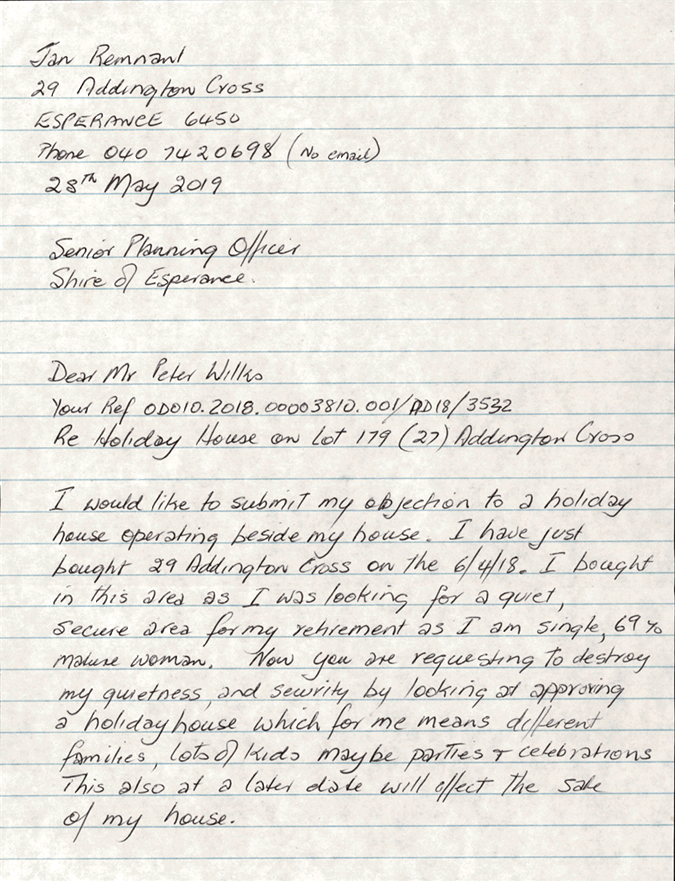 Jan Remnant
29 Addington Cross
ESPERANCE 6450
Phone 040 7420698 (No email)
28TH May 2019
Senior Planning Officer
Shire of Esperance.
Dear Mr Peter Wilks
Your Ref OD010.2018.00003810.001/AD18/3532
Re Holiday House on Lot 179 (27) Addington Cross
I would like to submit my objection to a holiday
house operating beside my house. I have just
bought 29 Addington Cross on the 6/4/18. I bought
in this area as I was looking for a quiet,
secure area for my retirement as I am single, 69 yo
mature woman. Now you are requesting to destroy
my quietness, and security by looking at approving
a holiday house which for me means different
families, lots of kids maybe parties & celebrations
This also at a later date will effect the sale
of my house.